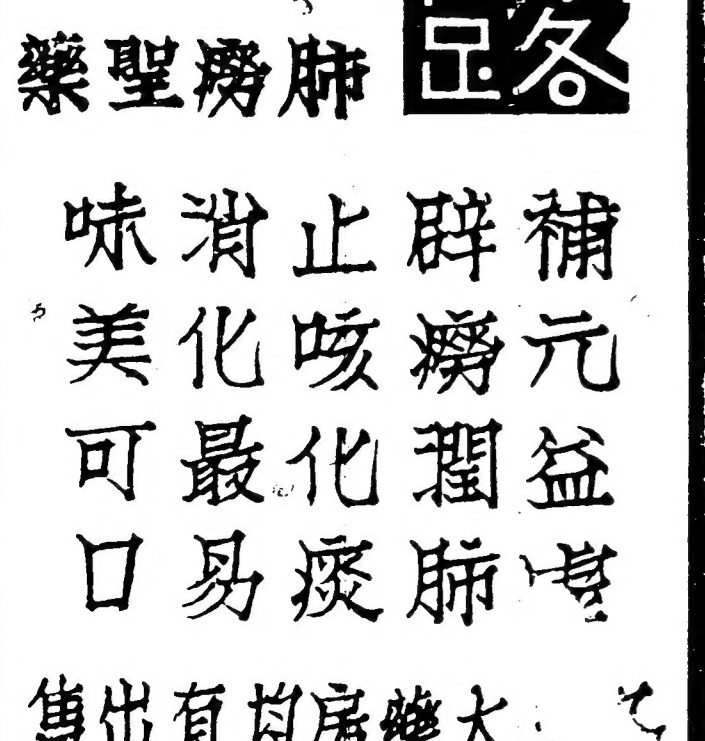 肺癆聖藥
補元益
辟癆潤肺
止咳化痰
消化最易
味美可口
大藥房均有出售